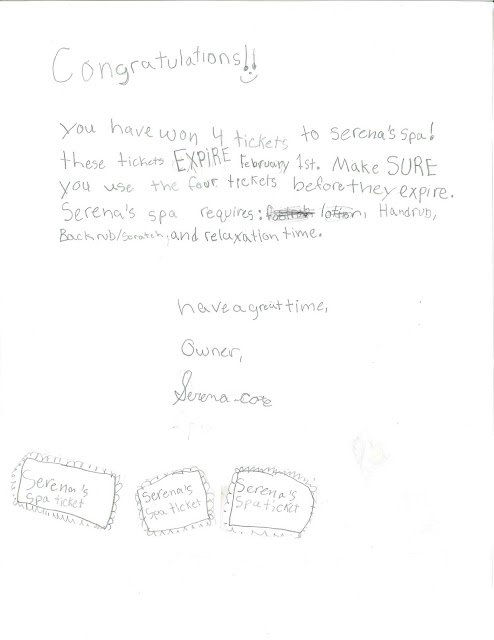 Congratulations!!
You have won 4 tickets to Serena's spa!
these tickets EXPIRE February 1st. Make SURE
you use the four tickets before they expire.
Serena's spa requires: lotion, Handrub,
Backrub/scratch, and relaxation time.
have a great time,
Owner,
Serena-Cate
Serena's
spa ticket
Serena's
spa ticket
Serena's
Spa ticket